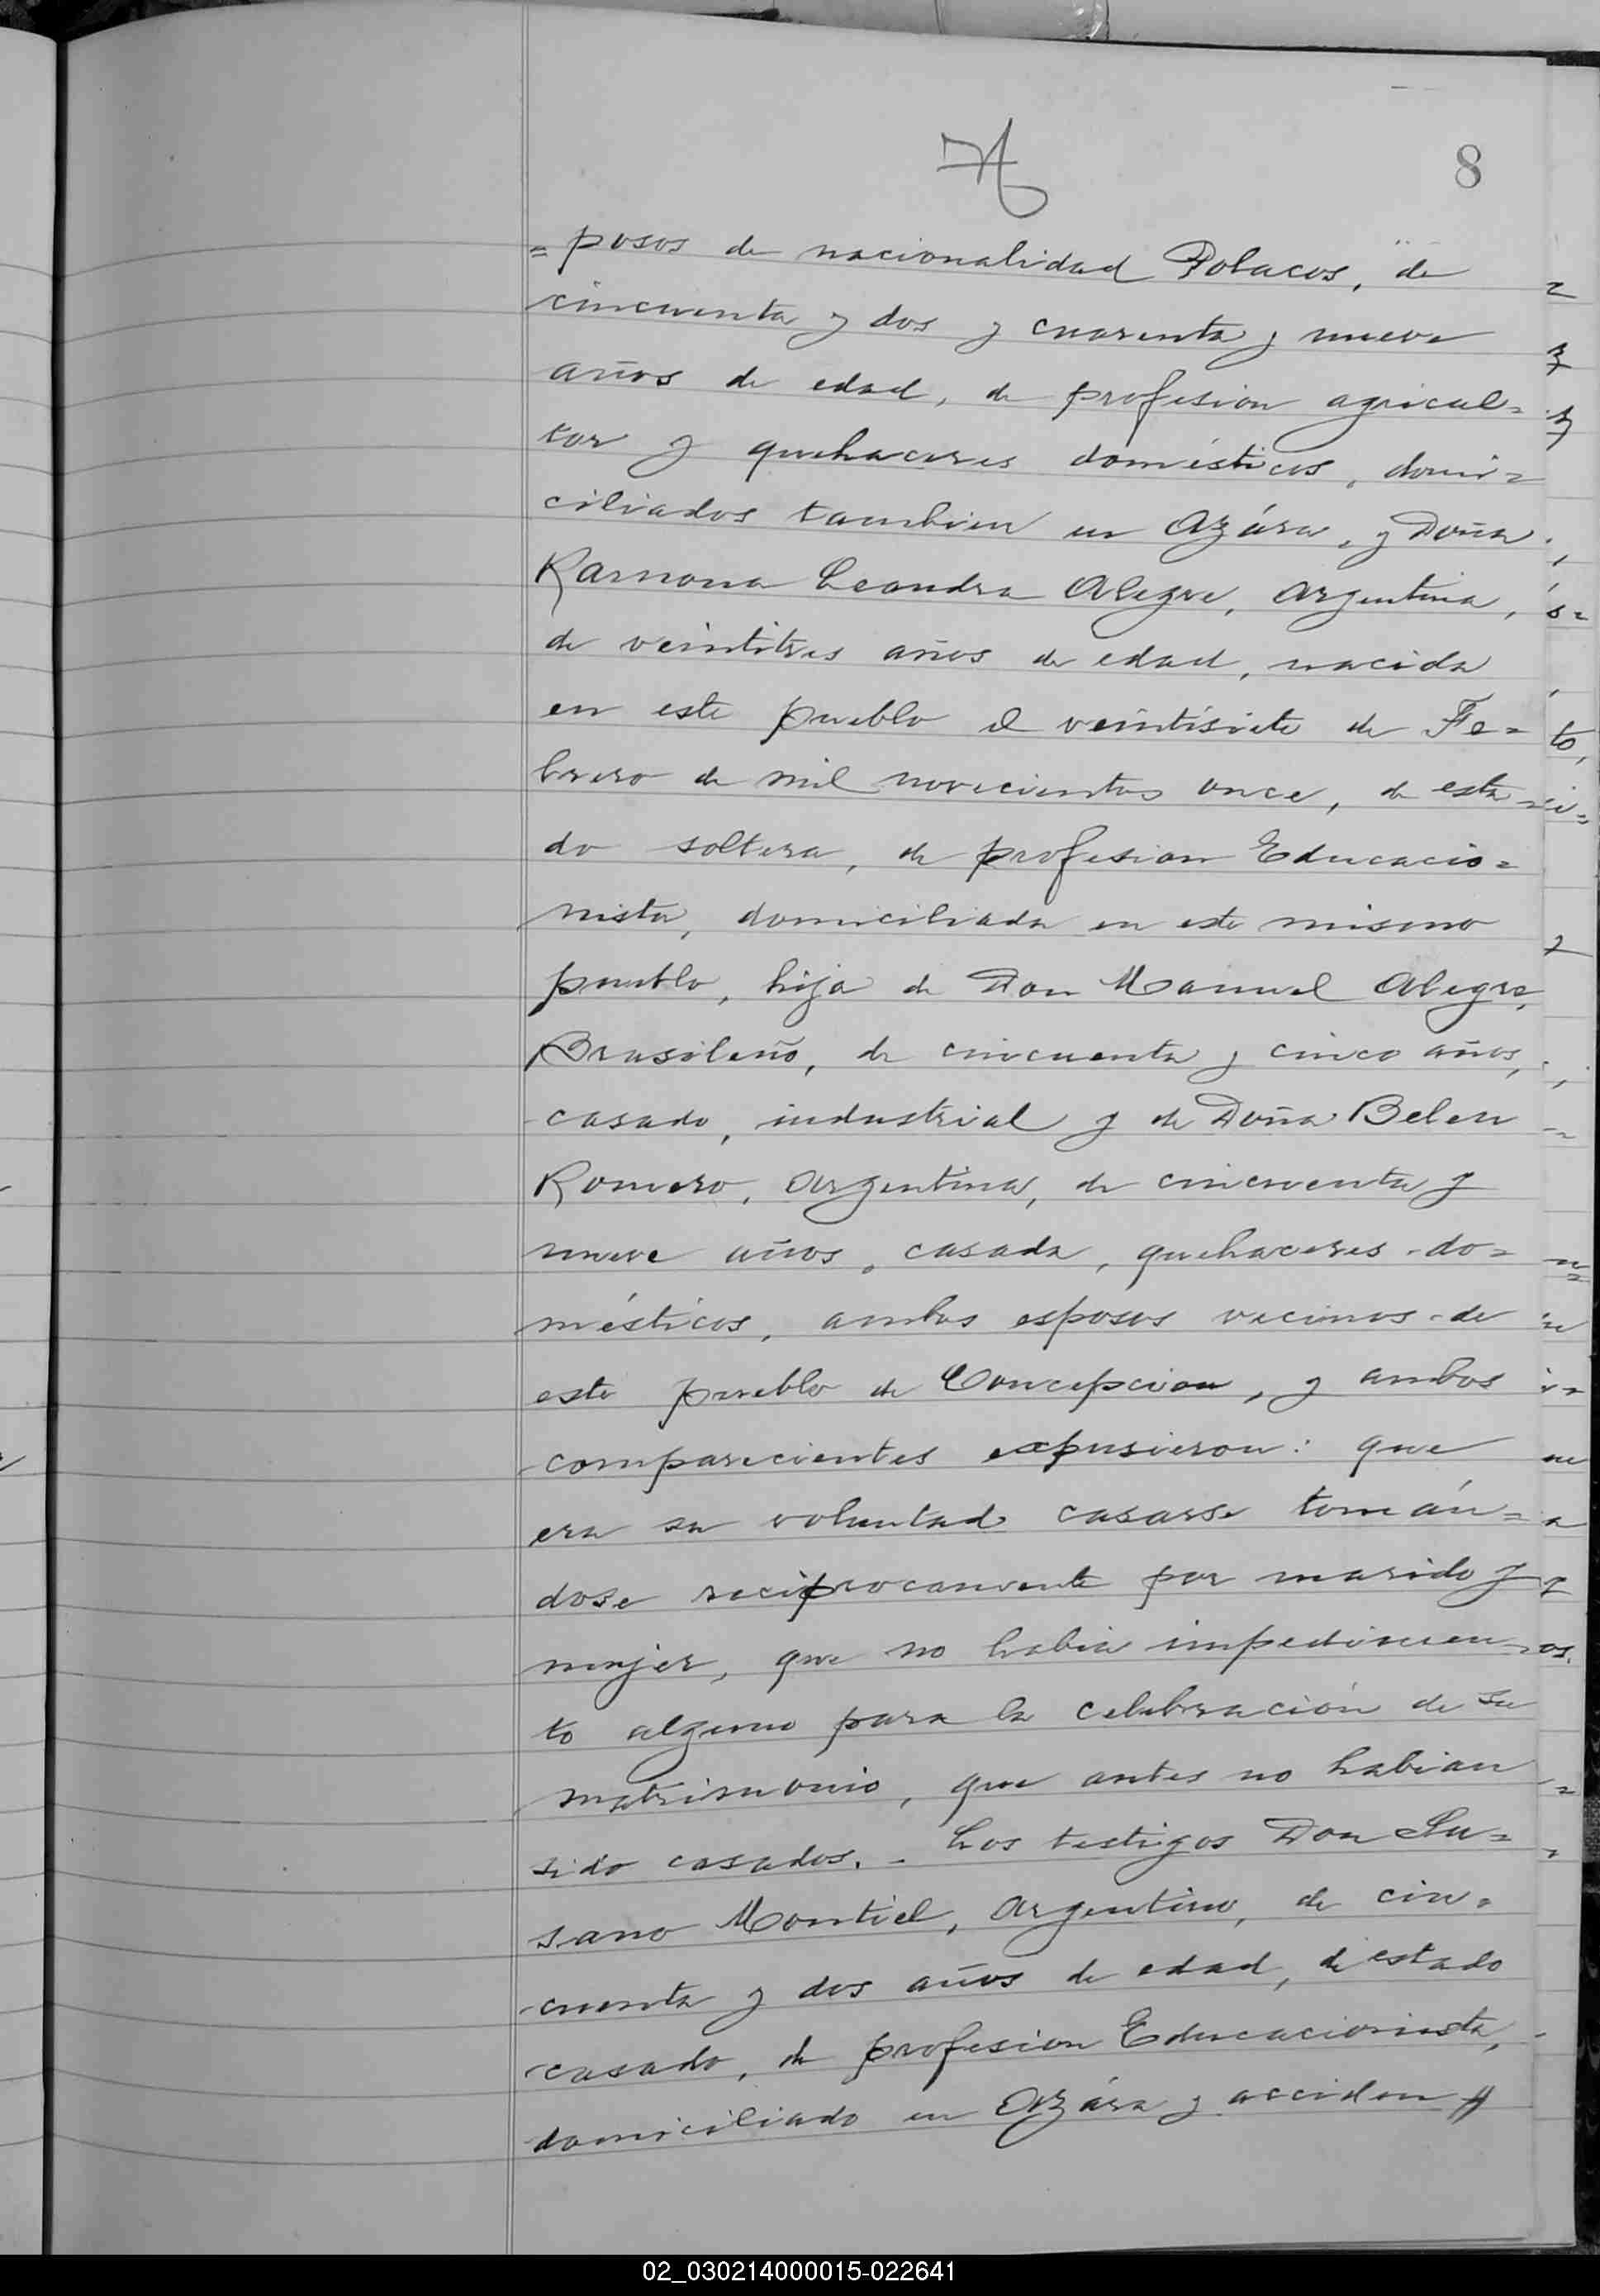 8
= posos de nacionalidad Polacos, de
cincuenta y dos y cuarenta y nueve
años de edad, de profesion agricul=
tor y quehaceres domésticos, domi=
ciliados tambien en Azára, y Doña
Ramona Leandra Alegre, Argentina,
de veintitres años de edad, nacida
en este pueblo el veintisiete de Fe=
brero de mil novecientos once, de esta
do soltera, de profesion Educacio=
nista, domiciliada en este mismo
pueblo, hija de Don Manuel Alegre,
Brasileño, de cincuenta y cinco años,
casado, industrial y de Doña Belen
Romero, Argentina, de cincuenta y
nueve años, casada, quehaceres do=
mésticos, ambos esposos vecinos de
este pueblo de Concepcion, y ambos
comparecientes expusieron: que
era su voluntad casarse tomán=
dose reciprocamente por marido y
mujer, que no habia impedimen
to alguno para la celebración de su
matrimonio, que antes no habian
sido casados. - Los testigos Don Su=
sano Montiel, Argentino, de cin=
cuenta y dos años de edad, de estado
casado, de profesion Educacionista,
domiciliado en Azára y acciden
02_030214000015-022641